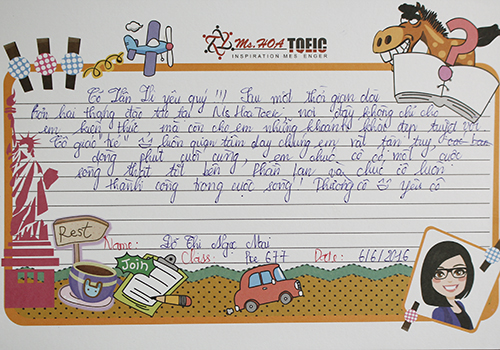 Ms. HOA TOEIC
INSPIRATION MESSENGER
Cô Vân Ly yêu quý !!! Sau một thời gian dài
hơn hai tháng học tại Ms Hoa Toeic, nơi đây không chỉ cho
em kiến thức mà còn cho em những khoảnh khắc đẹp tuyệt vời
Cô giáo trẻ luôn quan tâm dạy chúng em rất tận tụy
đóng phút cuối cùng, em chúc cô có một cuộc
sống thật tốt bên và chúc cô luôn
thành công trong cuộc sống! Thương cô yêu cô
Rest
Name: Đỗ Thị Ngọc Mai
Join
Class: Pre 677 Date: 6/6/2016